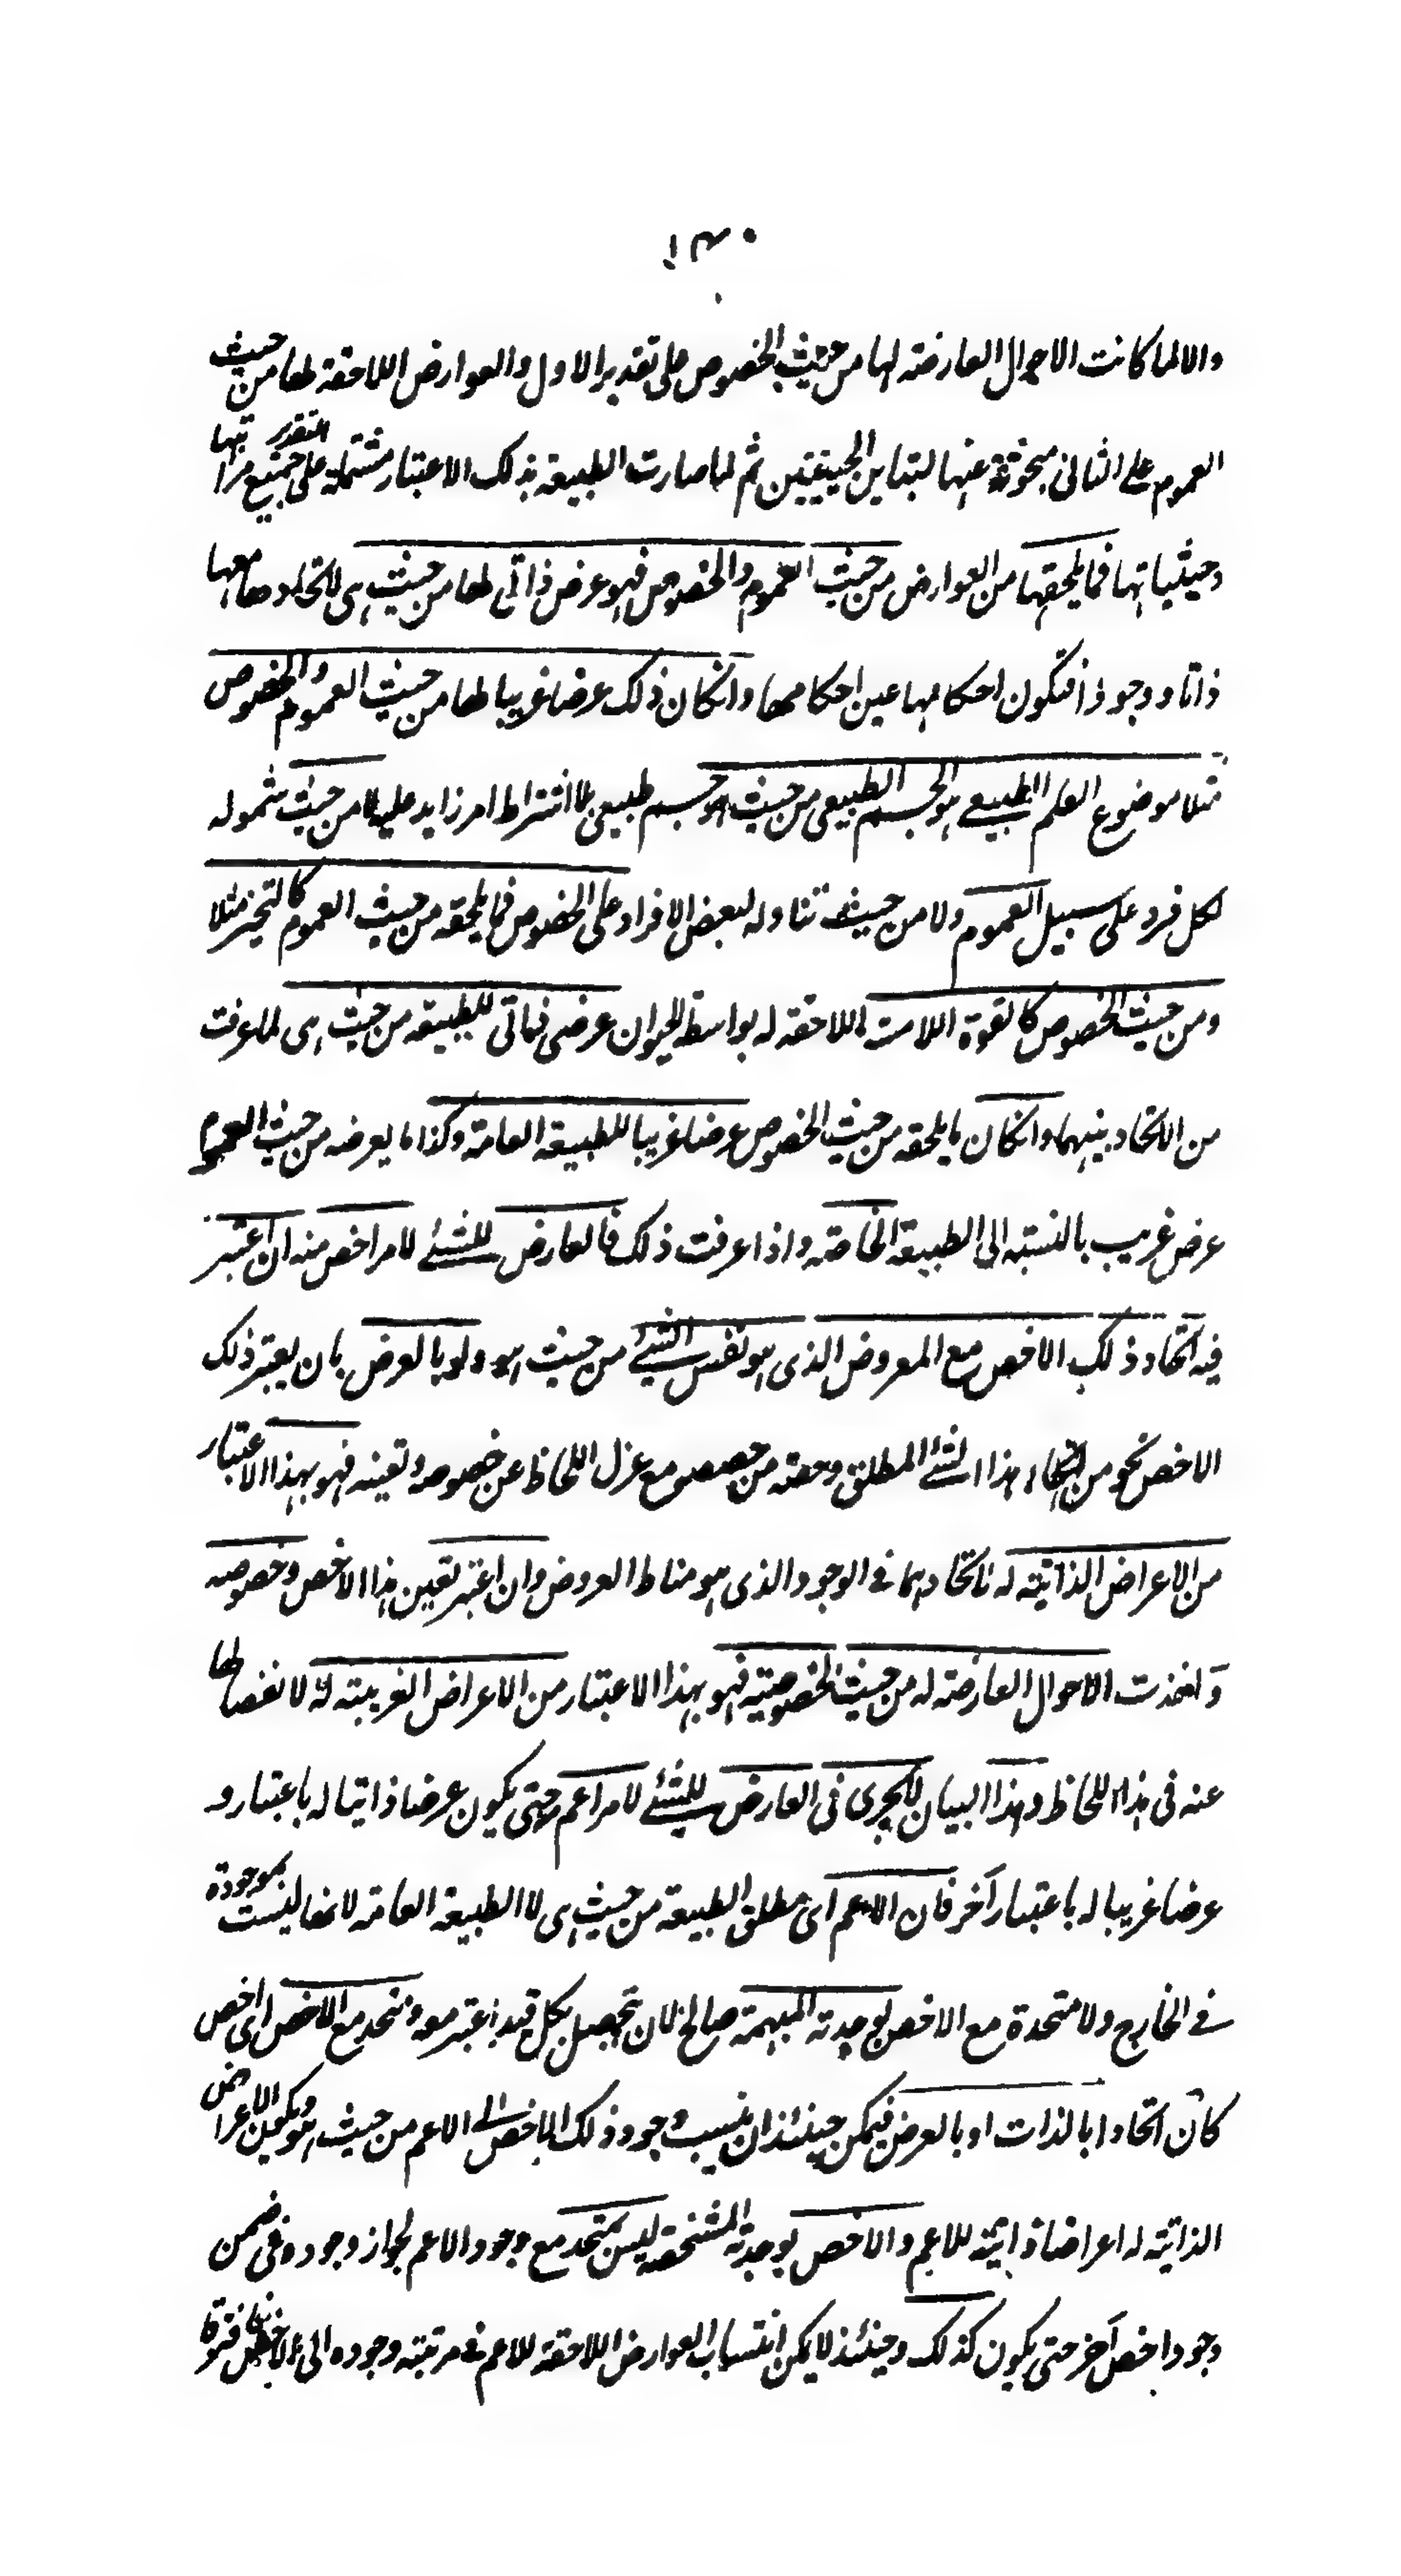 ١٣٠
والالما كانت الاحوال العارضة لها من حيث الخصوص على تقدير الاول والعوارض اللاحقة لها من حيث
العموم على الثانى مبحوثة عنها لتباين الحيثيتين ثم لما صارت الطبيعة بذلك الاعتبار مشتملة على جميع مراتبها
وحيثياتها فما يلحقها من العوارض من حيث العموم والخصوص فهو عرض ذاتى لها من حيث هى لاتحادها معها
ذاتا ووجودا فتكون احكامها عين احكامها وانكان ذلك عرضا غريبا لها من حيث العموم والخصوص
مثلا موضوع العلم الطبيعى هو الجسم الطبيعى من حيث هو جسم طبيعى بلا اشتراط امر زايد عليه لا من حيث شموله
لكل فرد على سبيل العموم ولا من حيث تناوله لبعض الافراد على الخصوص فما يلحقه من حيث العموم كالتحيز مثلا
ومن حيث الخصوص كالقوة اللامسة اللاحقة له بواسطة الحيوان عرض ذاتى للطبيعة من حيث هى لما عرفت
من الاتحاد بينهما وانكان ما يلحقه من حيث الخصوص عرضا غريبا للطبيعة العامة وكذا ما يعرضه من حيث العموم
عرض غريب بالنسبة الى الطبيعة الخاصة واذا عرفت ذلك فالعارض للشئ لامر اخص منه ان اعتبر
فيه اتحاد ذلك الاخص مع المعروض الذى هو نفس الشئ من حيث هو ولو بالعرض بان يعتبر ذلك
الاخص نحو من انحاء هذا الشئ المطلق وحصة من حصصه مع عزل اللحاظ عن خصوصه وتعينه فهو بهذا الاعتبار
من الاعراض الذاتية له لاتحادهما فى الوجود الذى هو مناط العروض وان اعتبر تعين هذا الاخص وخصوصه
واخذت الاحوال العارضة له من حيث الخصوصية فهو بهذا الاعتبار من الاعراض الغريبة له لانفصالها
عنه فى هذا اللحاظ وهذا البيان لا يجرى فى العارض للشئ لامر اعم حتى يكون عرضا ذاتيا له باعتبار و
عرضا غريبا له باعتبار آخر فان الاعم اى مطلق الطبيعة من حيث هى لا الطبيعة العامة لانها ليست بموجودة
فى الخارج ولا متحدة مع الاخص بوحدته المبهمة صالح لان يتحصل بكل قيد اعتبر معه ويتحد مع الاخص اى اخص
كان اتحادا بالذات او بالعرض فيمكن حينئذ ان ينسب وجود ذلك الاخص الى الاعم من حيث هو ويكون الاعراض
الذاتية له اعراضا ذاتية للاعم والاخص بوحدته المشخصة ليس بمتحد مع وجود الاعم لجواز وجوده فى ضمن
وجود اخص آخر حتى يكون كذلك وحينئذ لا يمكن انتساب العوارض اللاحقة للاعم فى مرتبة وجوده الى الاخص